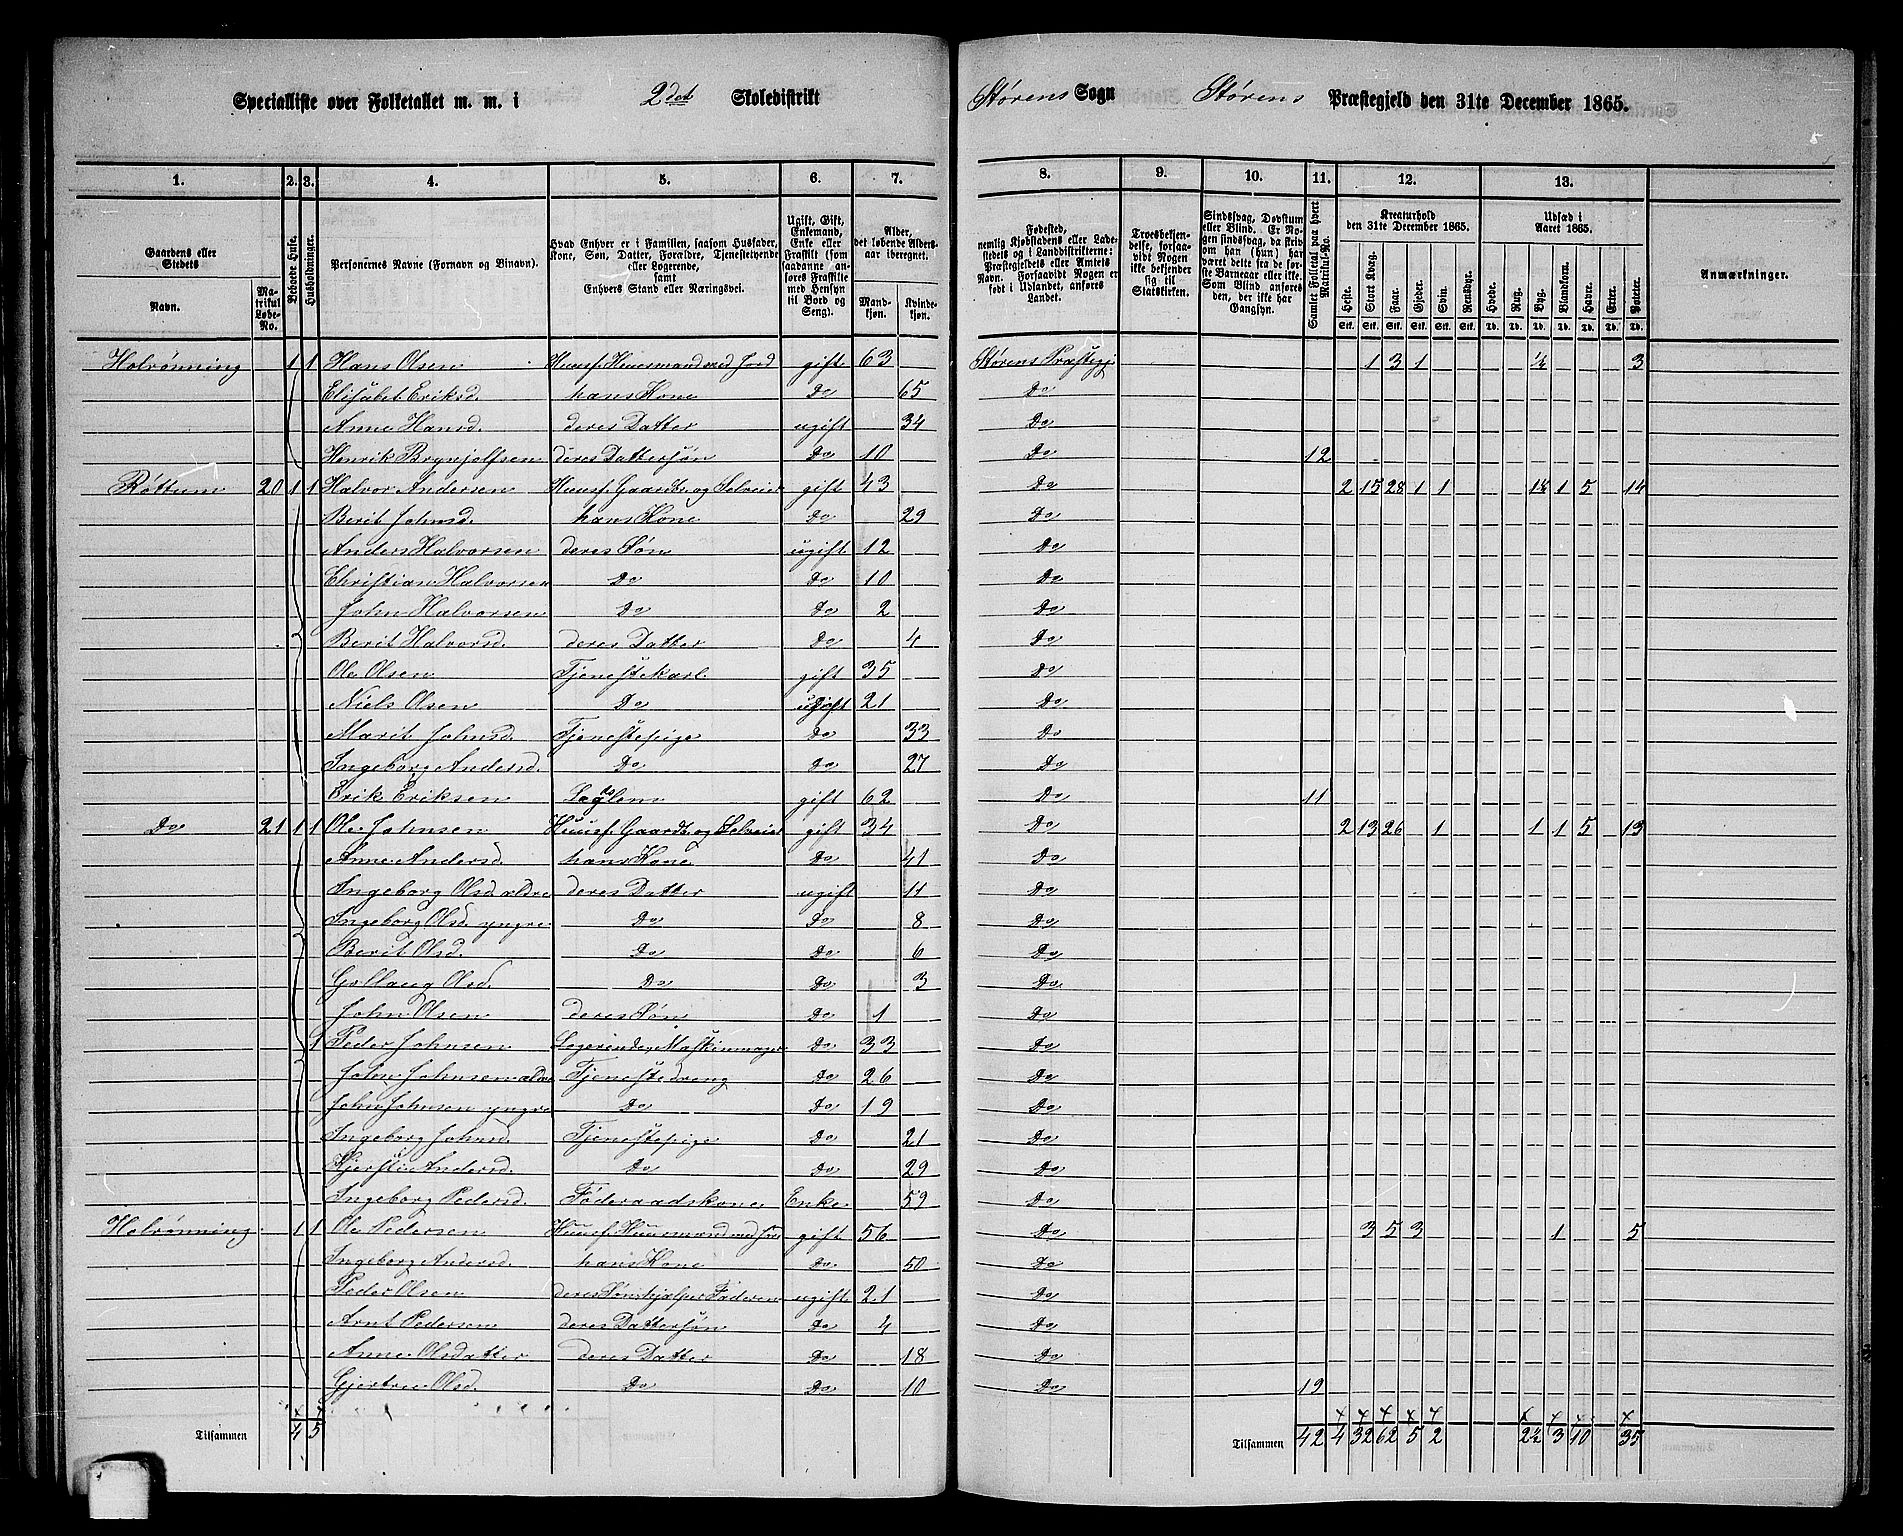 Specialliste over Folketallet m. m. i 2det Skoledistrikt Størens Sogn Størens Præstegjeld den 31te December 1865.
1. 2. 3. 4. 5. 6. 7. 8. 9. 10. 11. 12. 13.
Gaardens eller Stedets
Navn.
Matrikul Løbe-No.
Beboede Huse.
Husholdninger.
Personernes Navne (Fornavn og Binavn).
Hvad Enhver er i Familien, saasom Husfader, Kone, Søn, Datter, Forældre, Tjenestetyende eller Logerende, samt Enhvers Stand eller Næringsvei.
Ugift, Gift, Enkemand, Enke eller Fraskilt (som saadanne anføres Fraskilte med Hensyn til Bord og Seng).
Alder, det løbende Alders-aar iberegnet.
Mandkjøn. Kvindekjøn.
Fødested, nemlig Kjøbstadens eller Ladestedets og i Landdistrikterne: Præstegjeldets eller Amtets Navn. Forsaavidt Nogen er født i Udlandet, anføres Landet.
Troesbekjendelse, forsaavidt Nogen ikke bekjender sig til Statskirken.
Sindssvag, Døvstum eller Blind. Er Nogen sindssvag, da skrives om han (hun) har været dette fra de første Barneaar eller ikke. Som Blind anføres den, der ikke har Gangsyn.
Samlet Folketal paa hvert Matrikul-No.
Kreaturhold den 31te December 1865.
Heste. Stort Kvæg. Faar. Gjeder. Svin. Rensdyr.
Udsæd i Aaret 1865.
Hvede. Rug. Byg. Blandkorn. Havre. Erter. Poteter.
Anmærkninger.
Holrønning 1 1 Hans Olsen Huusf. Huusmand med Jord gift 63 Størens Præstegj 1 3 1 ¼ 3
Elisabet Eriksd. hans Kone Do 65 Do
Anne Hansd. deres Datter ugift 34 Do
Henrik Brynjolfsen deres Dattersøn Do 10 Do 12
Røttum 20 1 1 Halvor Andersen Huusf. Gaardb. og Selveier gift 43 Do 2 15 28 1 1 1 5 14
Berit Johnsd. hans Kone Do 29 Do
Anders Halvorsen deres Søn ugift 12 Do
Christian Halvorsen Do Do 10 Do
John Halvorsen Do Do 2 Do
Berit Halvorsd. deres Datter Do 4 Do
Ole Olsen Tjenestekarl gift 35 Do
Niels Olsen Do ugift 21 Do
Marit Johnsd. Tjenestepige Do 33 Do
Ingeborg Andersd. Do Do 27 Do
Erik Eriksen Lægdslem gift 62 Do 11
Do 21 1 1 Ole Johnsen Huusf. Gaardb. og Selveier gift 34 Do 2 13 26 1 1 1 5 13
Anne Andersd. hans Kone Do 41 Do
Ingeborg Olsd. ældre deres Datter ugift 11 Do
Ingeborg Olsd. yngre Do Do 8 Do
Berit Olsd. Do Do 6 Do
Gollaug Olsd. Do Do 3 Do
John Olsen deres Søn Do 1 Do
1 Peder Johnsen Logerende, Maskinmager Do 33 Do
John Johnsen ældre Tjenestedreng Do 26 Do
John Johnsen yngre Do Do 19 Do
Ingeborg Johnsd. Tjenestepige Do 21 Do
Kjersti Andersd. Do Do 29 Do
Ingeborg Pedersd. Føderaadskone Enke 59 Do
Holrønning 1 1 Ole Pedersen Huusf. Huusmand med Jord gift 56 Do 3 5 3 1 5
Ingeborg Andersd. hans Kone Do 50 Do
Peder Olsen deres Søn hjælper Faderen ugift 21 Do
Arnt Pedersen deres Dattersøn Do 4 Do
Anne Olsdatter deres Datter Do 18 Do
Gjertru Olsd. Do Do 10 Do 19
Tilsammen 4 5 Tilsammen 42 4 32 62 5 2 2½ 3 10 35